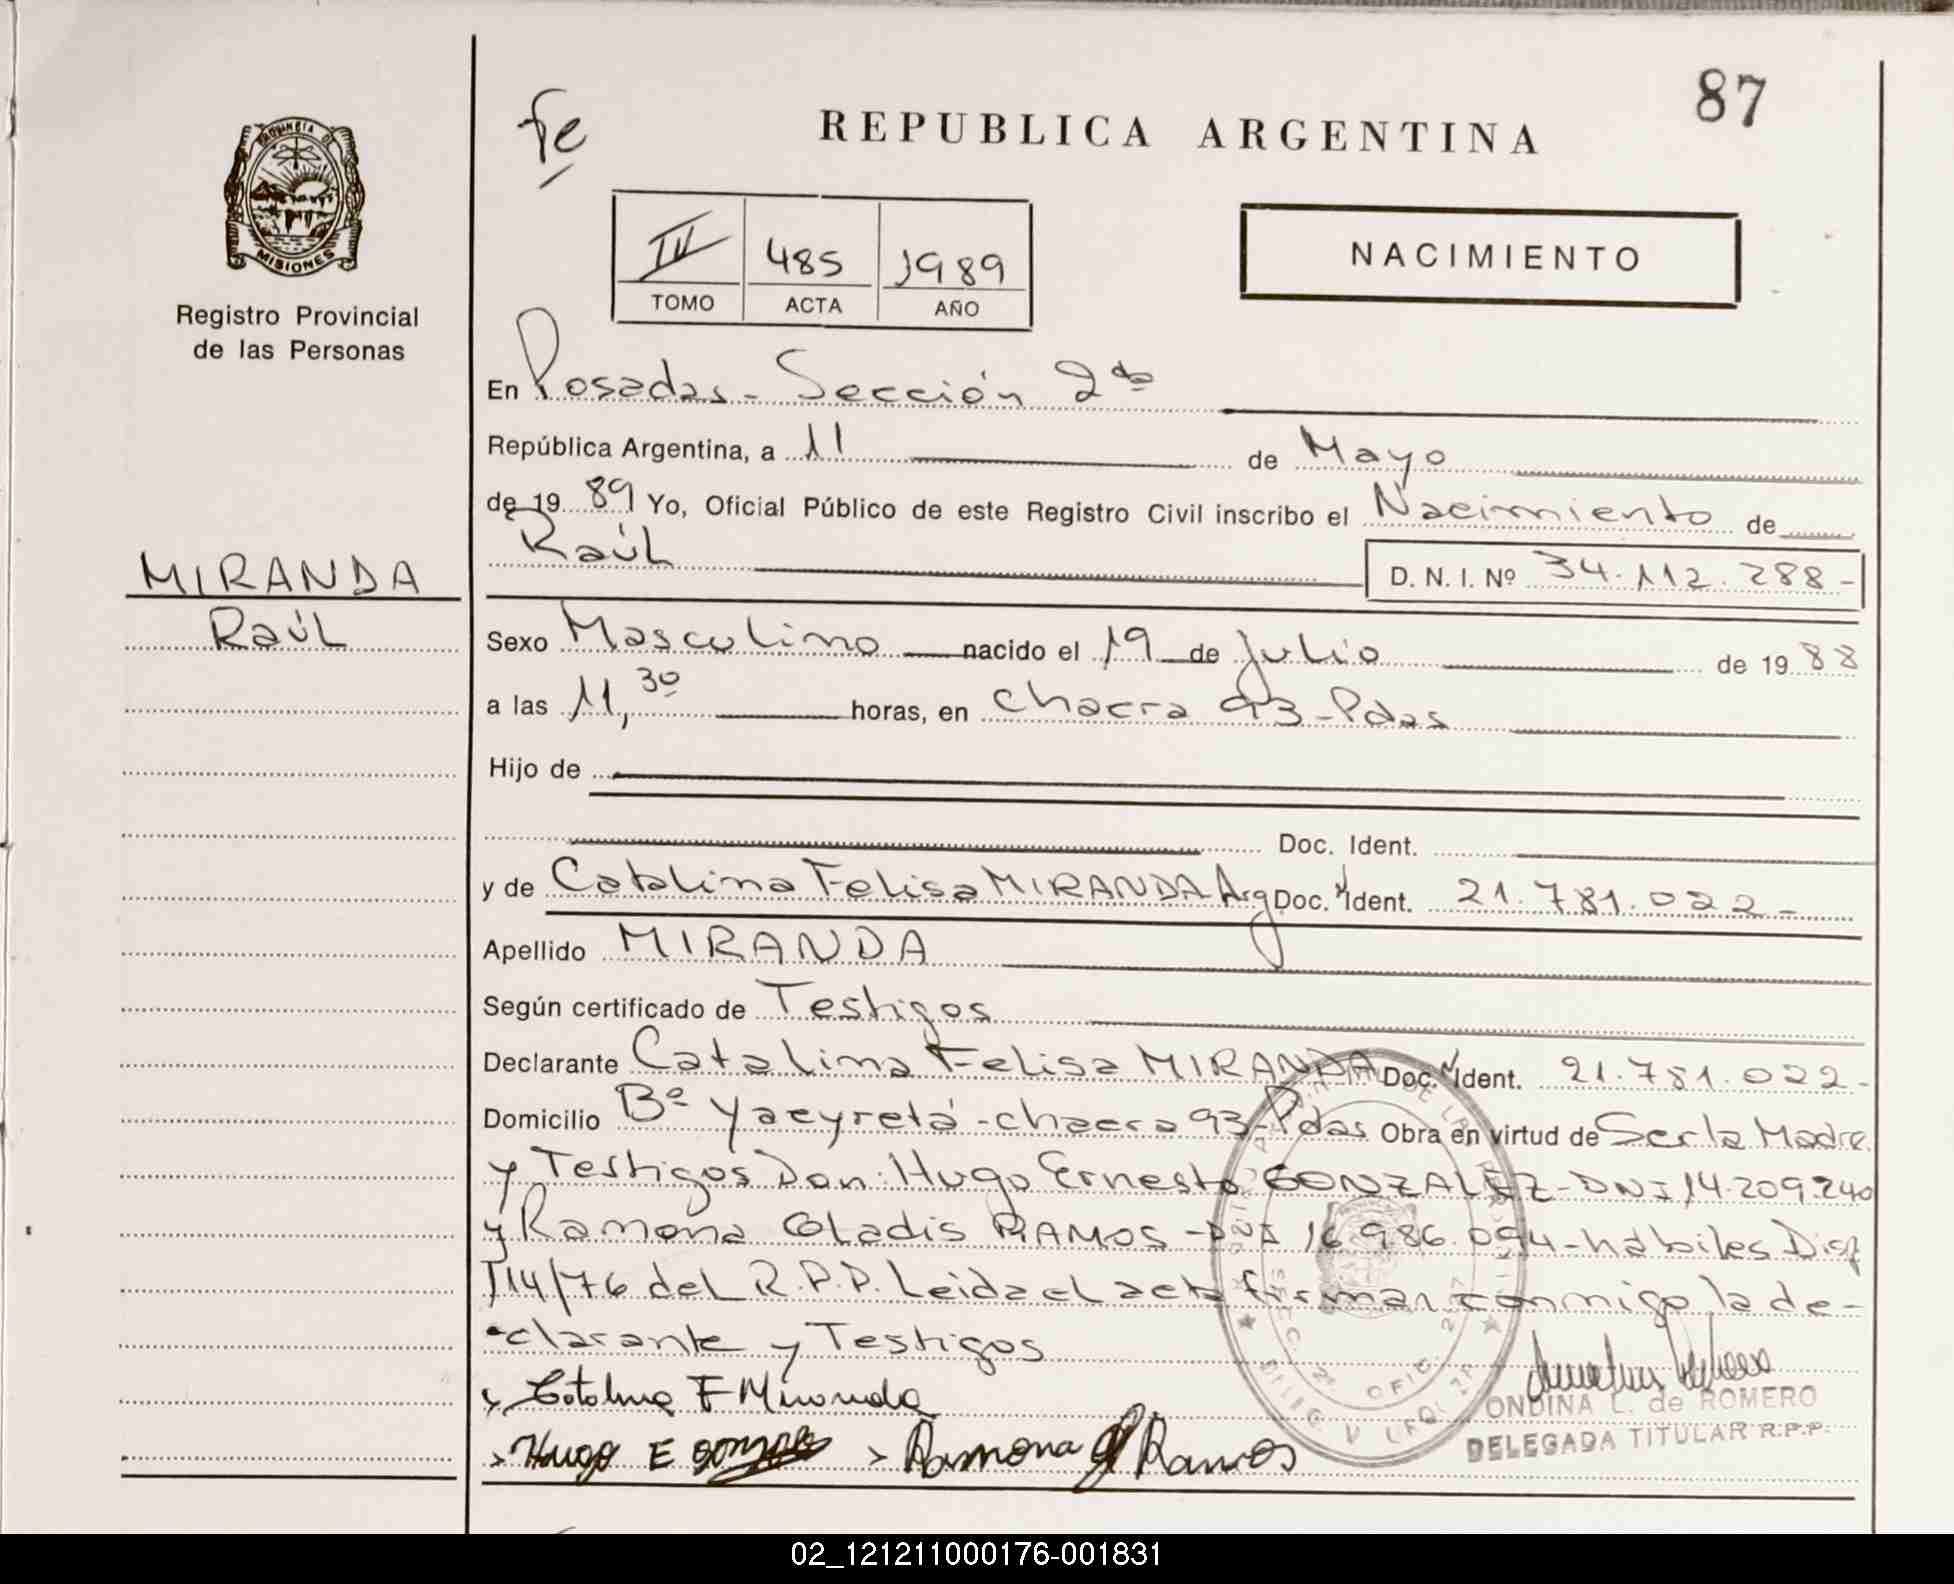 87
fe
REPUBLICA ARGENTINA
PROVINCIA DE
MISIONES
Registro Provincial
de las Personas
IV 485 1989
TOMO ACTA AÑO
NACIMIENTO
En Posadas - Sección 2da
República Argentina, a 11 de Mayo
de 1989 Yo, Oficial Público de este Registro Civil inscribo el Nacimiento de
Raúl D. N. I. Nº 34.112.288-
MIRANDA
Raúl
Sexo Masculino nacido el 19 de Julio de 1988
a las 11,30 horas, en chacra 93-Pdas
Hijo de
Doc. Ident.
y de Catalina Felisa MIRANDA Arg Doc. Ident. 21.781.022-
Apellido MIRANDA
Según certificado de Testigos
Declarante Catalina Felisa MIRANDA Doc. Ident. 21.781.022-
Domicilio Bº Yacyretá-chacra 93-Pdas Obra en virtud de Ser la Madre
y Testigos Don: Hugo Ernesto GONZALEZ-DNI 14.209.240
y Ramona Gladis RAMOS-DNI 16.986.094-hábiles Disp
114/76 del R.P.P. Leida el acta firman conmigo la de-
clarante y Testigos
Catalina F Miranda
Hugo E Ramona G Ramos
ONDINA L. de ROMERO
DELEGADA TITULAR R.P.P.
02_121211000176-001831